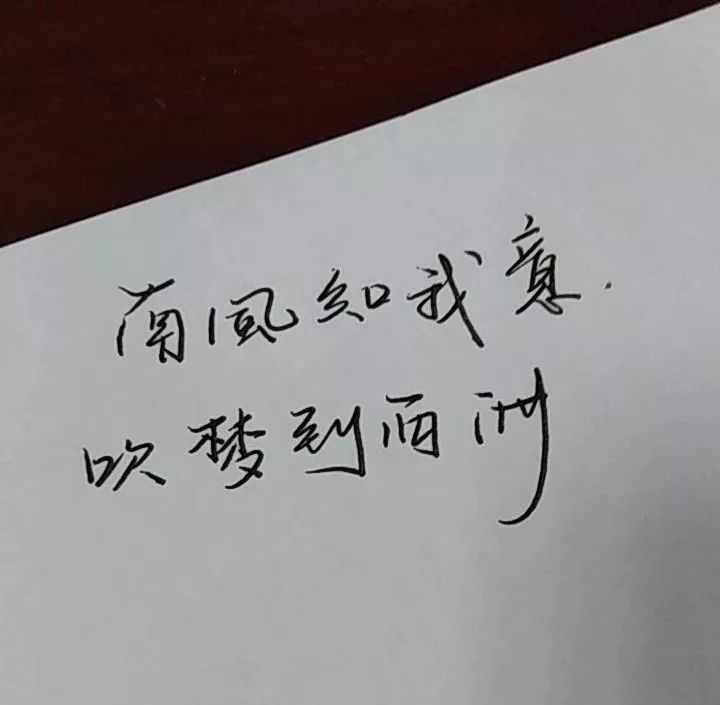 南風知我意.
吹梦到西洲